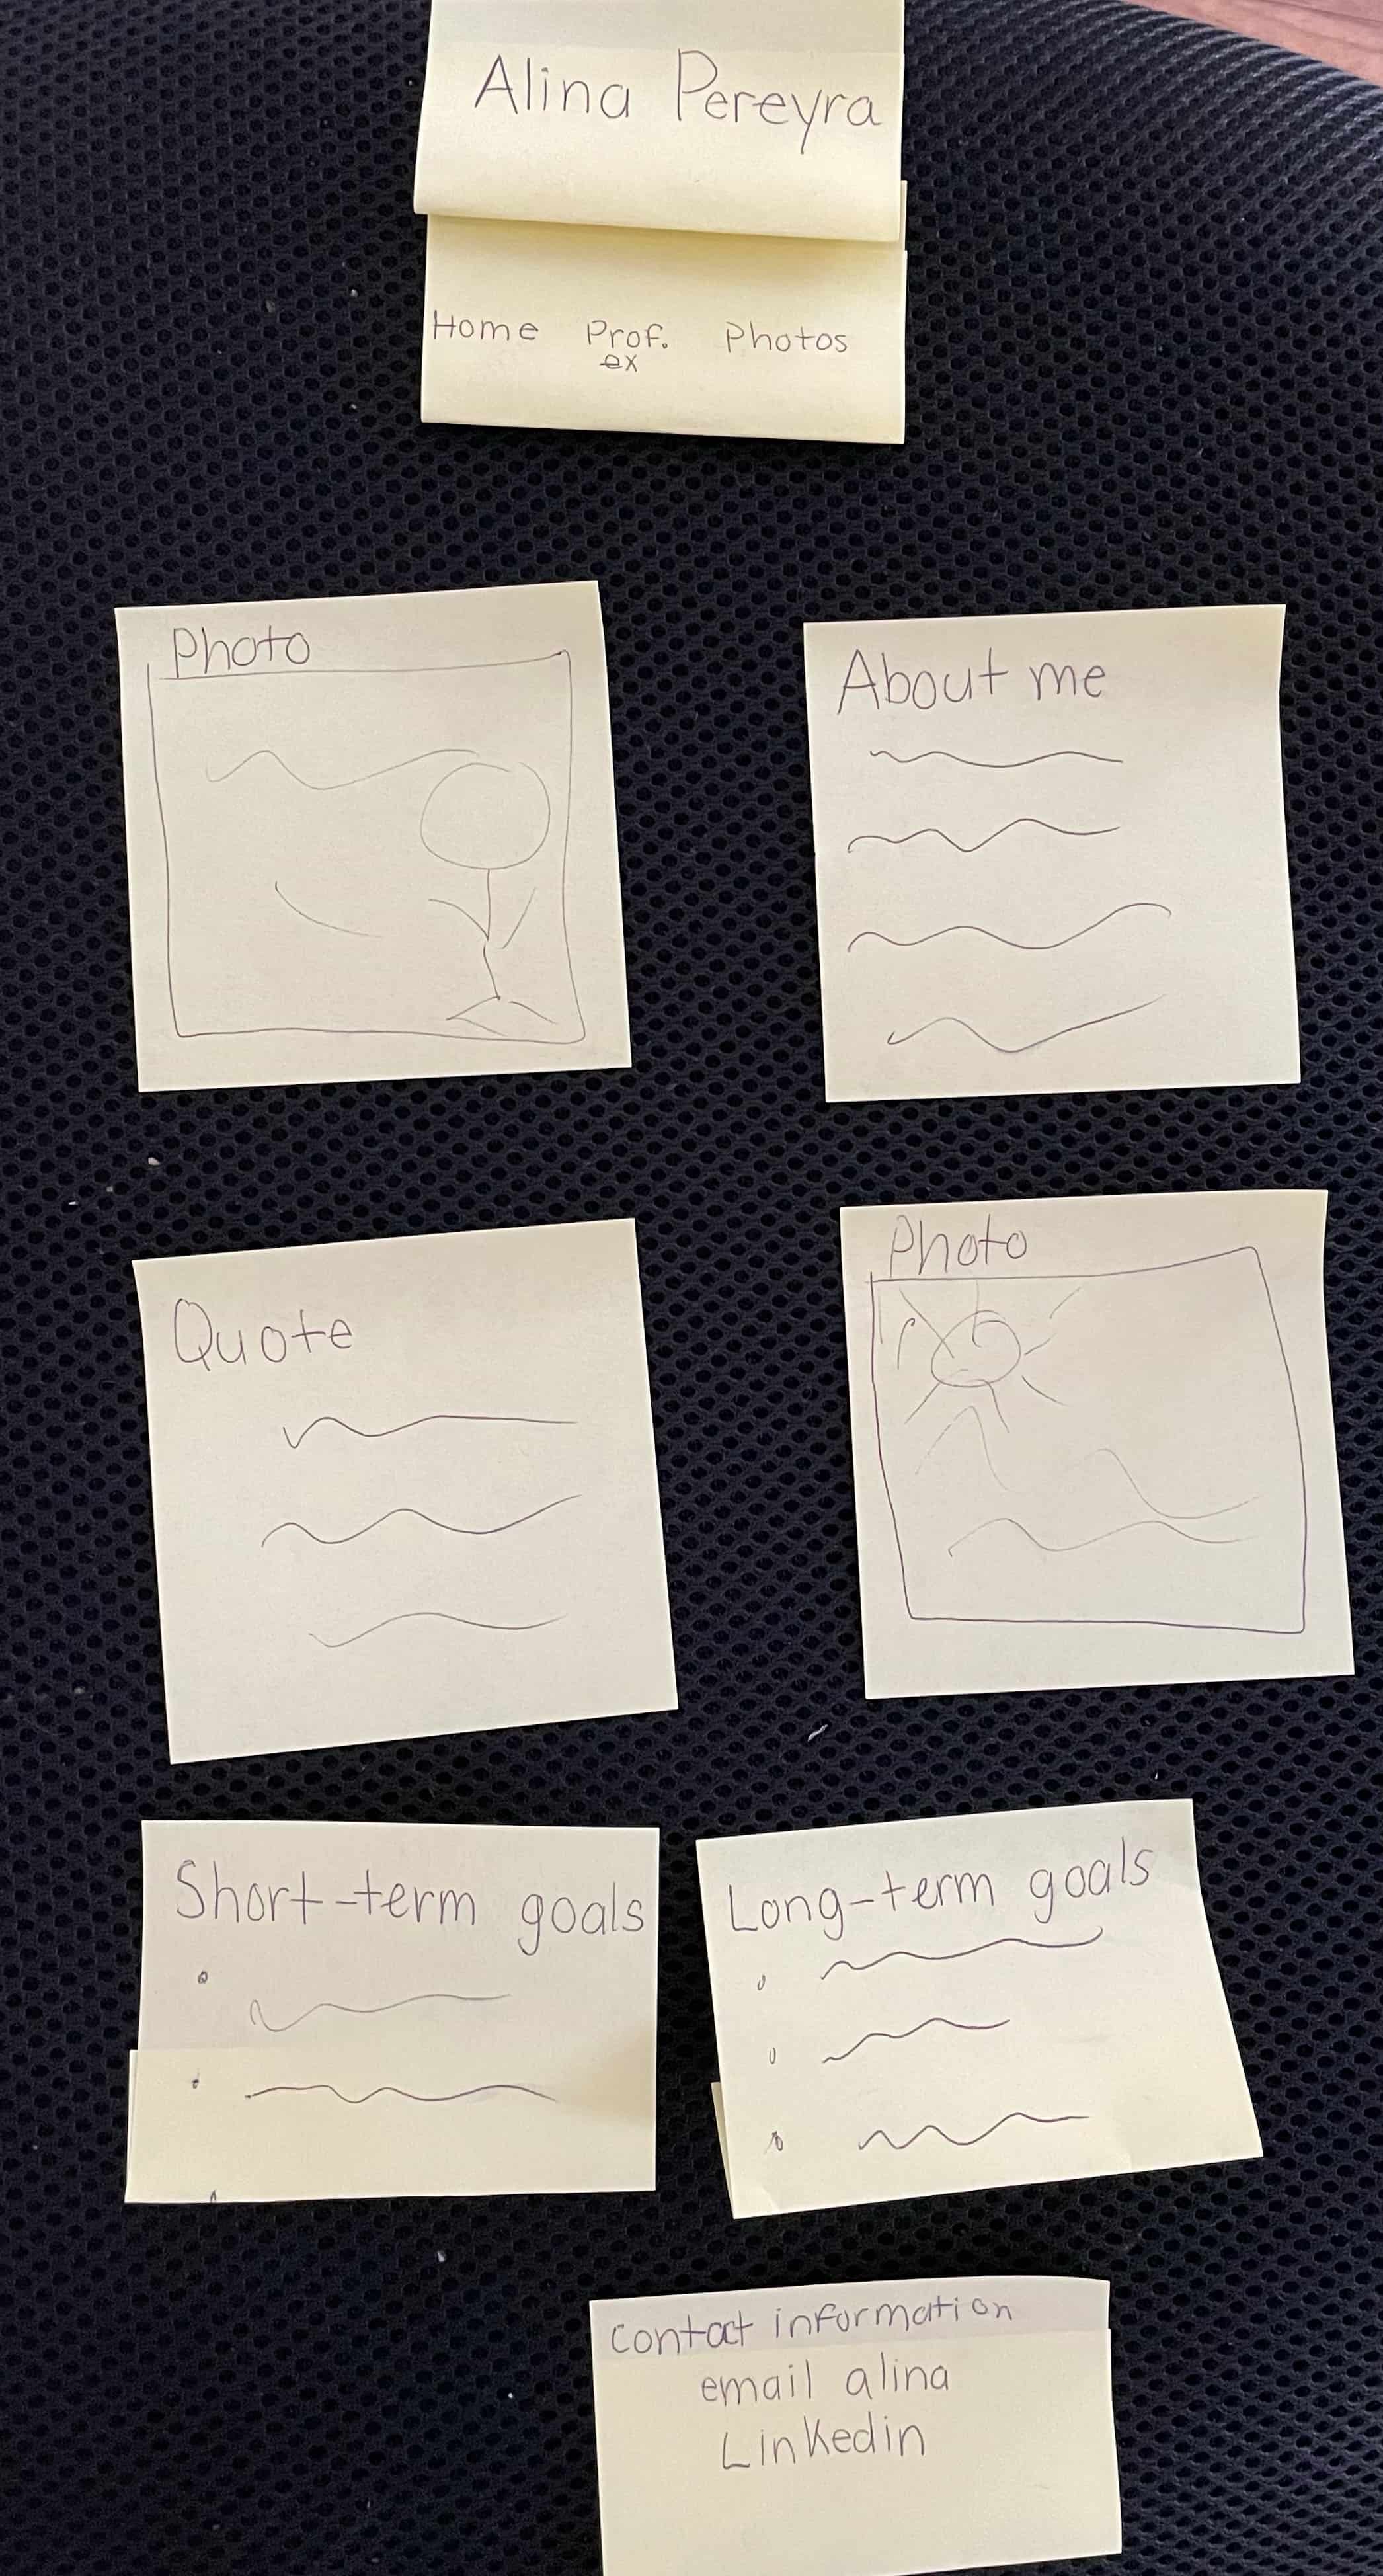 Alina Pereyra
Home Prof. Photos
ex
Photo
About me
Quote
Photo
Short-term goals
Long-term goals
contact information
email alina
Linkedin